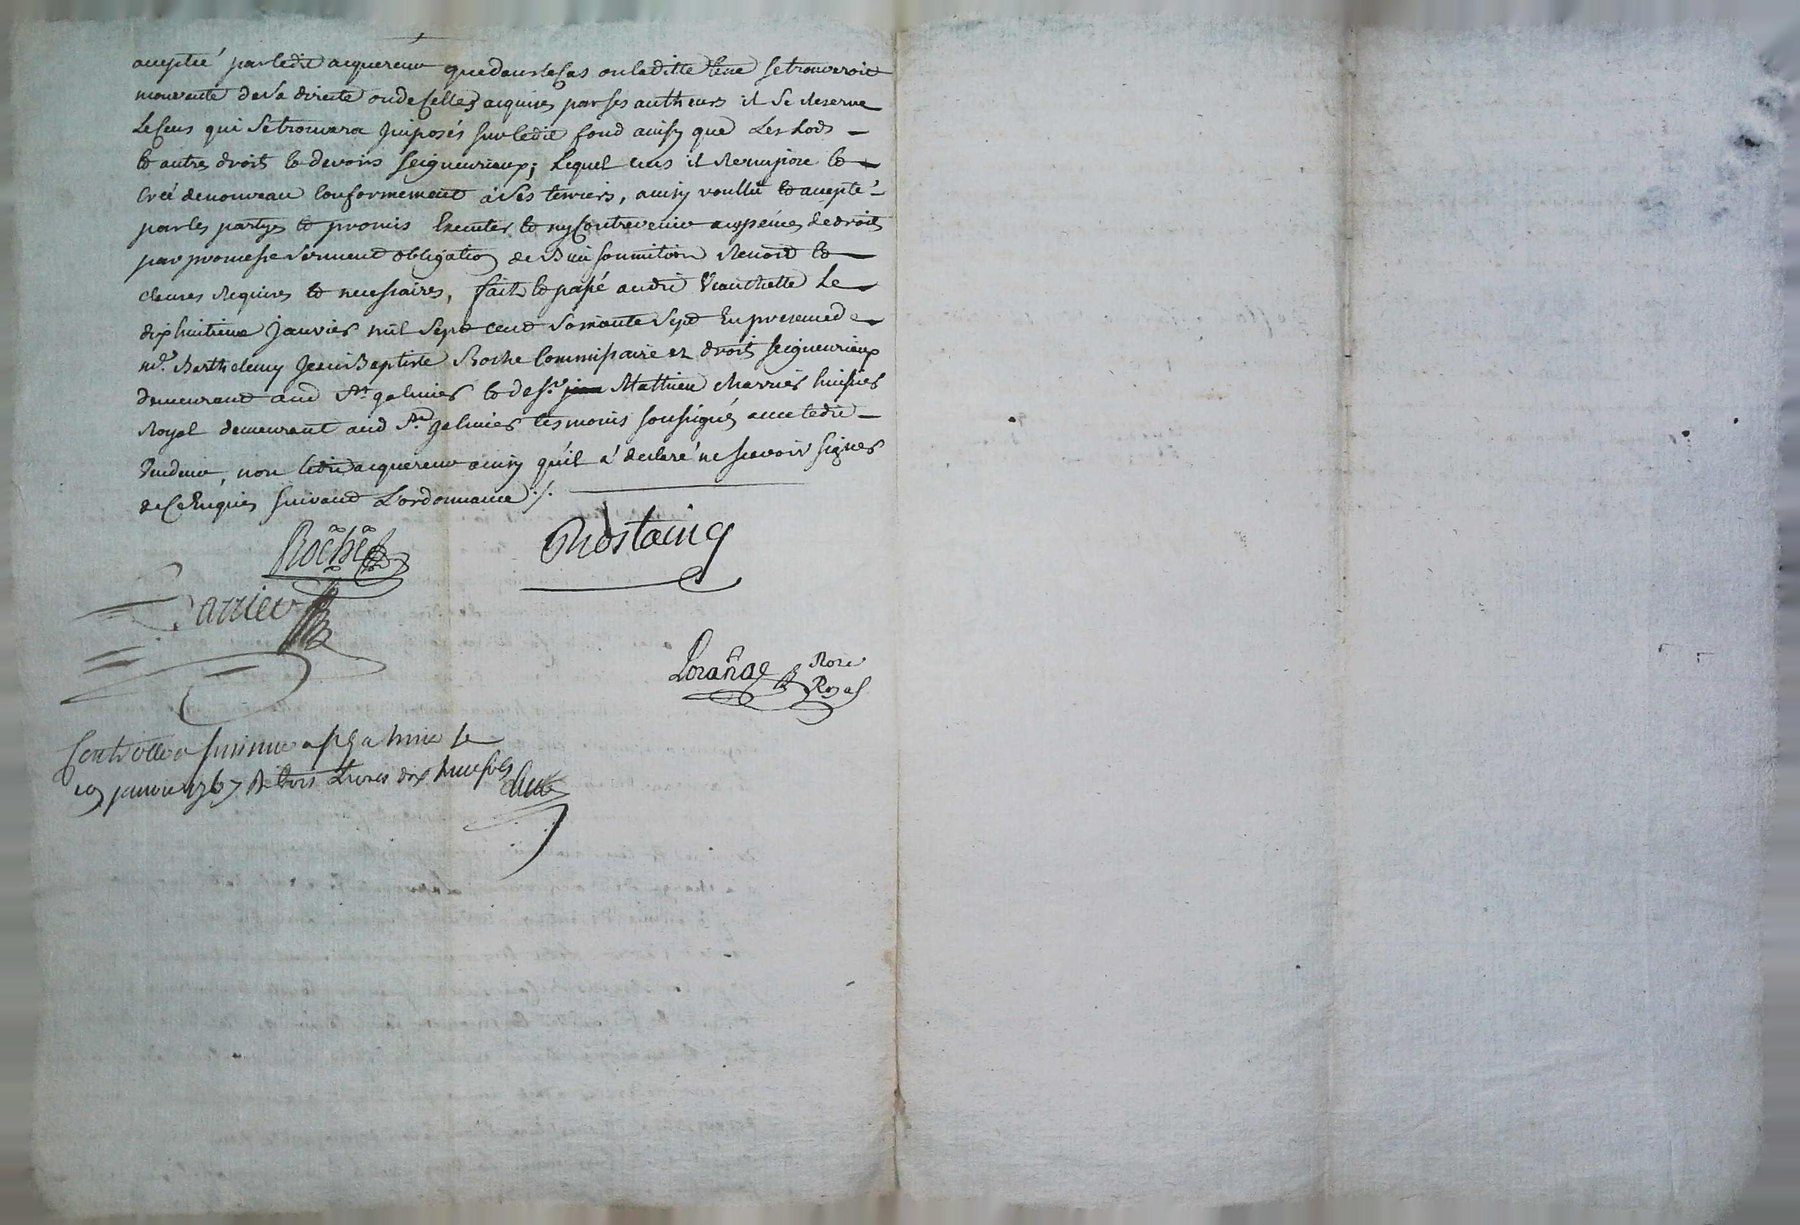 accepté par ledit acquereur que dans le cas ou laditte terre se trouveroit
mouvante de sa directe ou de celles acquires par ses autheurs il se reserve
le sens qui se trouvera imposés sur ledit fond ainsy que les lods
et autres droits et devoirs seigneuriaux; lequel cens il
creé de nouveau conformement à ses terriers, ainsy voullu et accepté
par les partyes et promis executer et ny contrevenir aux peines de droit
par promesse serment obligation de biens soumition renont et
clauses requises et necessaires, fait et passé audit Viauchette le
dixhuitieme janvier mil sept cent soixante sept en presence de
me. Barthelemy Jean Baptiste Roche Commissaire ez droits seigneuriaux
demeurant aud St. galmier et de sr. Mathieu charrier huissier
Royal demeurant aud St. galmier tesmoins soussignés avec ledit
vendeur, non ledit acquereur ainsy qu'il a declaré ne scavoir signer
de ce enquis suivant l'ordonnance ./.
Roche Rostaing
Carrier
Pora Nore
Royal
Controllé a St galmier le
19 janvier 1767 R trois livres dix huit sols